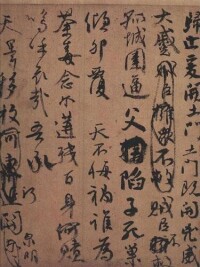 歸止爰開土門土門既開凶威
大蹙賊臣擁衆不救賊臣不救
孤城圍逼父陷子死巢
傾卵覆 天不悔禍誰為
荼毒念爾遘殘百身何贖
嗚乎哀哉吾承
天澤移牧河關
泉明